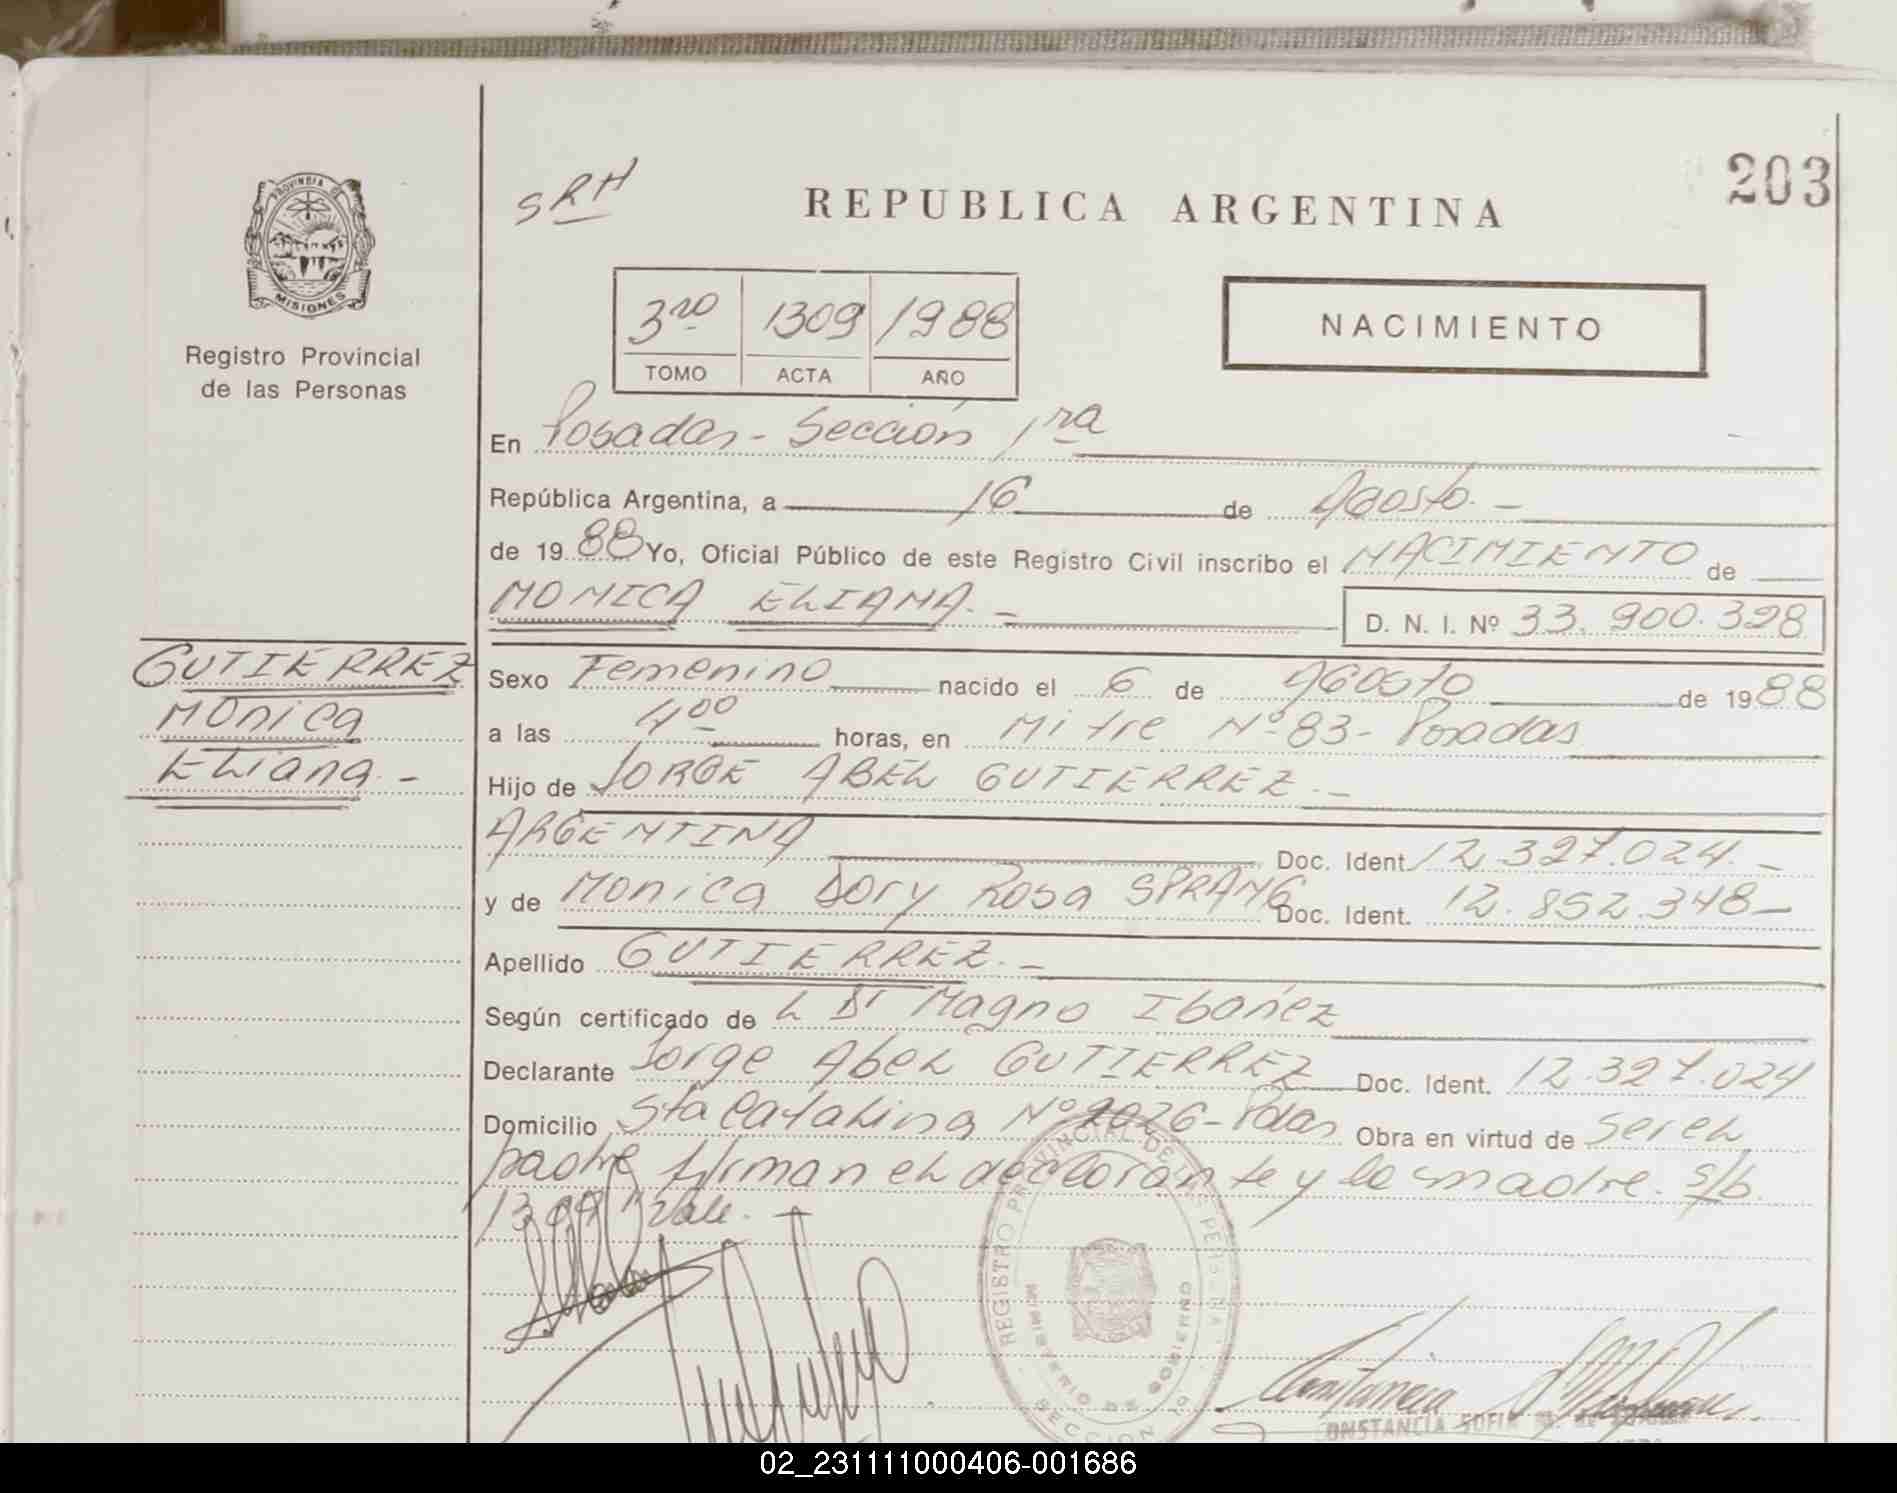 203
SRH
REPUBLICA ARGENTINA
PROVINCIA DE
MISIONES
Registro Provincial
de las Personas
3ro 1309 1988
TOMO ACTA AÑO
NACIMIENTO
En Posadas - Sección 1ra
República Argentina, a 16 de Agosto. -
de 1988 Yo, Oficial Público de este Registro Civil inscribo el NACIMIENTO de
MONICA ELIANA. - D. N. I. Nº 33.900.398
GUTIERREZ
Mónica
Eliana. -
Sexo Femenino nacido el 6 de Agosto de 1988
a las 4 00 horas, en Mitre Nº 83 - Posadas
Hijo de JORGE ABEL GUTIERREZ. -
ARGENTINA Doc. Ident. 12.327.024. -
y de Monica Dory Rosa SPRANG Doc. Ident. 12.852.348 -
Apellido GUTIERREZ. -
Según certificado de L Dr Magno Ibañez
Declarante Jorge Abel GUTIERREZ Doc. Ident. 12.327.024
Domicilio Sta Catalina Nº 2026 - Pdas Obra en virtud de ser el
padre firman el declarante y la madre. s/b.
1309 " Vale. -
REGISTRO PROVINCIAL DE LAS PERSONAS
MINISTERIO DE GOBIERNO
SECCION 1a
CONSTANCIA SOFIA
02_231111000406-001686